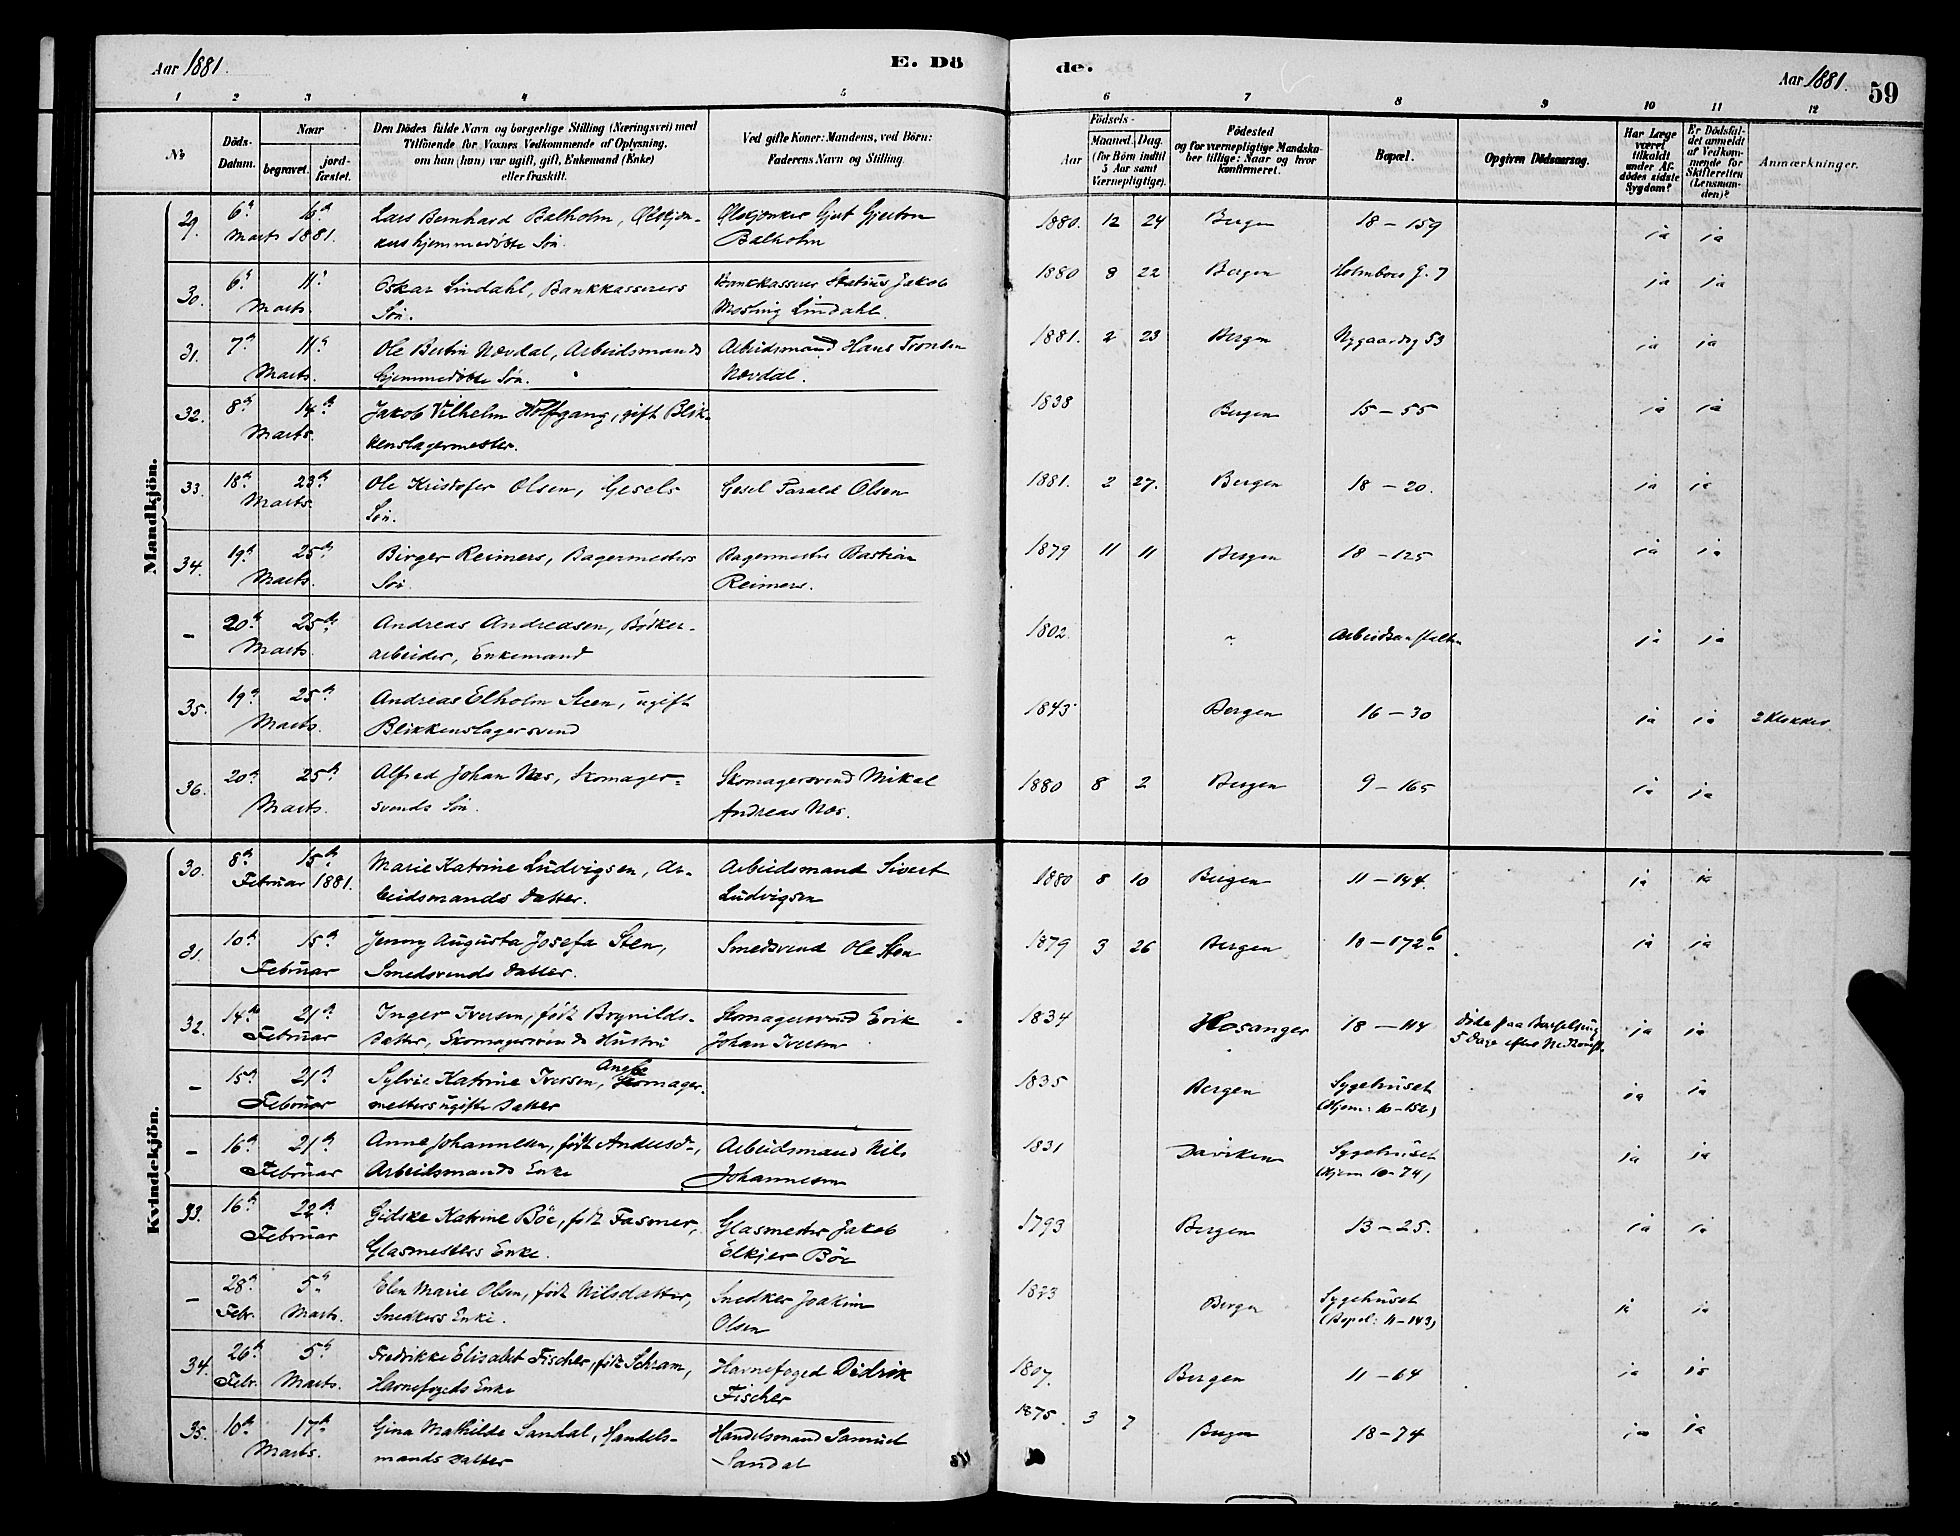 Aar 1881.
E. Dö
de.
Aar 1881.
59
1 2 3 4 5 6 7 8 9 10 11 12
No
Döds-Datum.
Naar
begravet.
jord-fæstet.
Den Dödes fulde Navn og borgerlige Stilling (Næringsvei) med
Tilföiende for Voxnes Vedkommende af Oplysning,
om han (hun) var ugift, gift, Enkemand (Enke)
eller fraskilt.
Ved gifte Koner: Mandens, ved Börn:
Faderens Navn og Stilling.
Födsels-
Aar
Maaned.
Dag.
(for Börn indtil
5 Aar samt
Værnepligtige).
Födested
og for værnepligtige Mandska-
ber tillige: Naar og hvor
konfirmeret.
Bopæl.
Opgiven Dödsaarsag.
Har Læge
været
tilkaldt
under Af-
dödes sidste
Sygdom?
Er Dödsfal-
det anmeldt
af Vedkom-
mende for
Skifteretten
(Lensman-
den)?
Anmærkninger.
Mandkjön.
29. 6te 16de Lars Bernhard Balholm, Ølskjæn- Ølskjænker Gjert Gjertsen 1880. 12 24 Bergen 18 – 159 ja ja
Marts 1881. kers hjemmedøbte Søn. Balholm
30. 6te 11te Oskar Lindahl, Bankkasserers Bankkasserer Statius Jakob 1880 9 22 Bergen Holmboes G. 7 ja ja
Marts. Søn. Mosling Lindahl.
31. 7de 11te Ole Bertin Nævdal, Arbeidsmands Arbeidsmand Hans Tronsen 1881. 2 23 Bergen Nygaardsg 53 ja ja
Marts. hjemmedøbte Søn. Nævdal.
32. 8de 14de Jakob Vilhelm Wolfgang, gift Blik- 1838 Bergen 15 – 55 ja ja
Marts. kenslagermester.
33. 18de 23de Ole Kristofer Olsen, Gesels Gesel Tarald Olsen 1881. 2 27. Bergen 18 – 20. ja ja
Marts. Søn.
34. 19de 25de Birger Reimers, Bagermesters Bagermester Bastian 1879 11 11 Bergen 18 – 125 ja ja
Marts. Søn. Reimers.
– 20de 25de Andreas Andreasen, Bødker- 1802. Arbeidsanstalten ja ja
Marts. arbeider, Enkemand
35. 19de 25de Andreas Elholm Steen, ugift 1843 Bergen 16 – 30 ja ja 2 Klokker
Marts. Blikkenslagersvend
36. 20de 25de Alfred Johan Næs, Skomager- Skomagersvend Mikal 1880 8 2 Bergen 9 – 165 ja ja
Marts. svends Søn. Andreas Næs.
Kvindekjön.
30. 8de 15de Marie Katrine Ludvigsen, Ar- Arbeidsmand Sivert 1880 8 10 Bergen 11 – 144. ja ja
Februar 1881. beidsmands Datter. Ludvigsen
31. 10de 15de Jenny Augusta Josefa Sten, Smedsvend Ole Sten 1879 3 26 Bergen 18 – 172 b ja ja
Februar Smedsvends Datter.
32. 14de 21de Inger Iversen, født Brynilds- Skomagersvend Erik 1834 Hosanger 18 – 114 døde paa Barselseng ja ja
Februar datter, Skomagersvends Hustru Johan Iversen 5 Dage efter Nedkomst.
– 15de 21de Sylvie Katrine Iversen, Skomager- 1835 Bergen Sygehuset ja ja
Februar mesters ugifte Datter (Hjem: 10 – 152)
– 16de 21de Anne Johannesen, født Andersd., Arbeidsmand Nils 1831 Daviken Sygehuset ja ja
Februar Arbeidsmands Enke Johannesen (Hjem 10 – 74)
33. 16de 22de Gidske Katrine Böe, født Fasmer, Glasmester Jakob 1793 Bergen 13 – 25. ja ja
Februar Glasmesters Enke. Elkjer Böe
– 28de 5te Elen Marie Olsen, født Nilsdatter, Snedker Joakim 1823 Bergen Sygehuset ja ja
Febr. Marts. Snedkers Enke. Olsen (Bopel: 11 – 143)
34. 26de 5te Fredrikke Elisabet Fischer, født Schram, Havnefoged Didrik 1807. Bergen 11 – 64 ja ja
Febr. Marts. Havnefogeds Enke Fischer
35. 10de 17de Gina Mathilde Sandal, Handels- Handelsmand Samuel 1875. 3 7 Bergen 18 – 74 ja ja
Marts. mands Datter Sandal